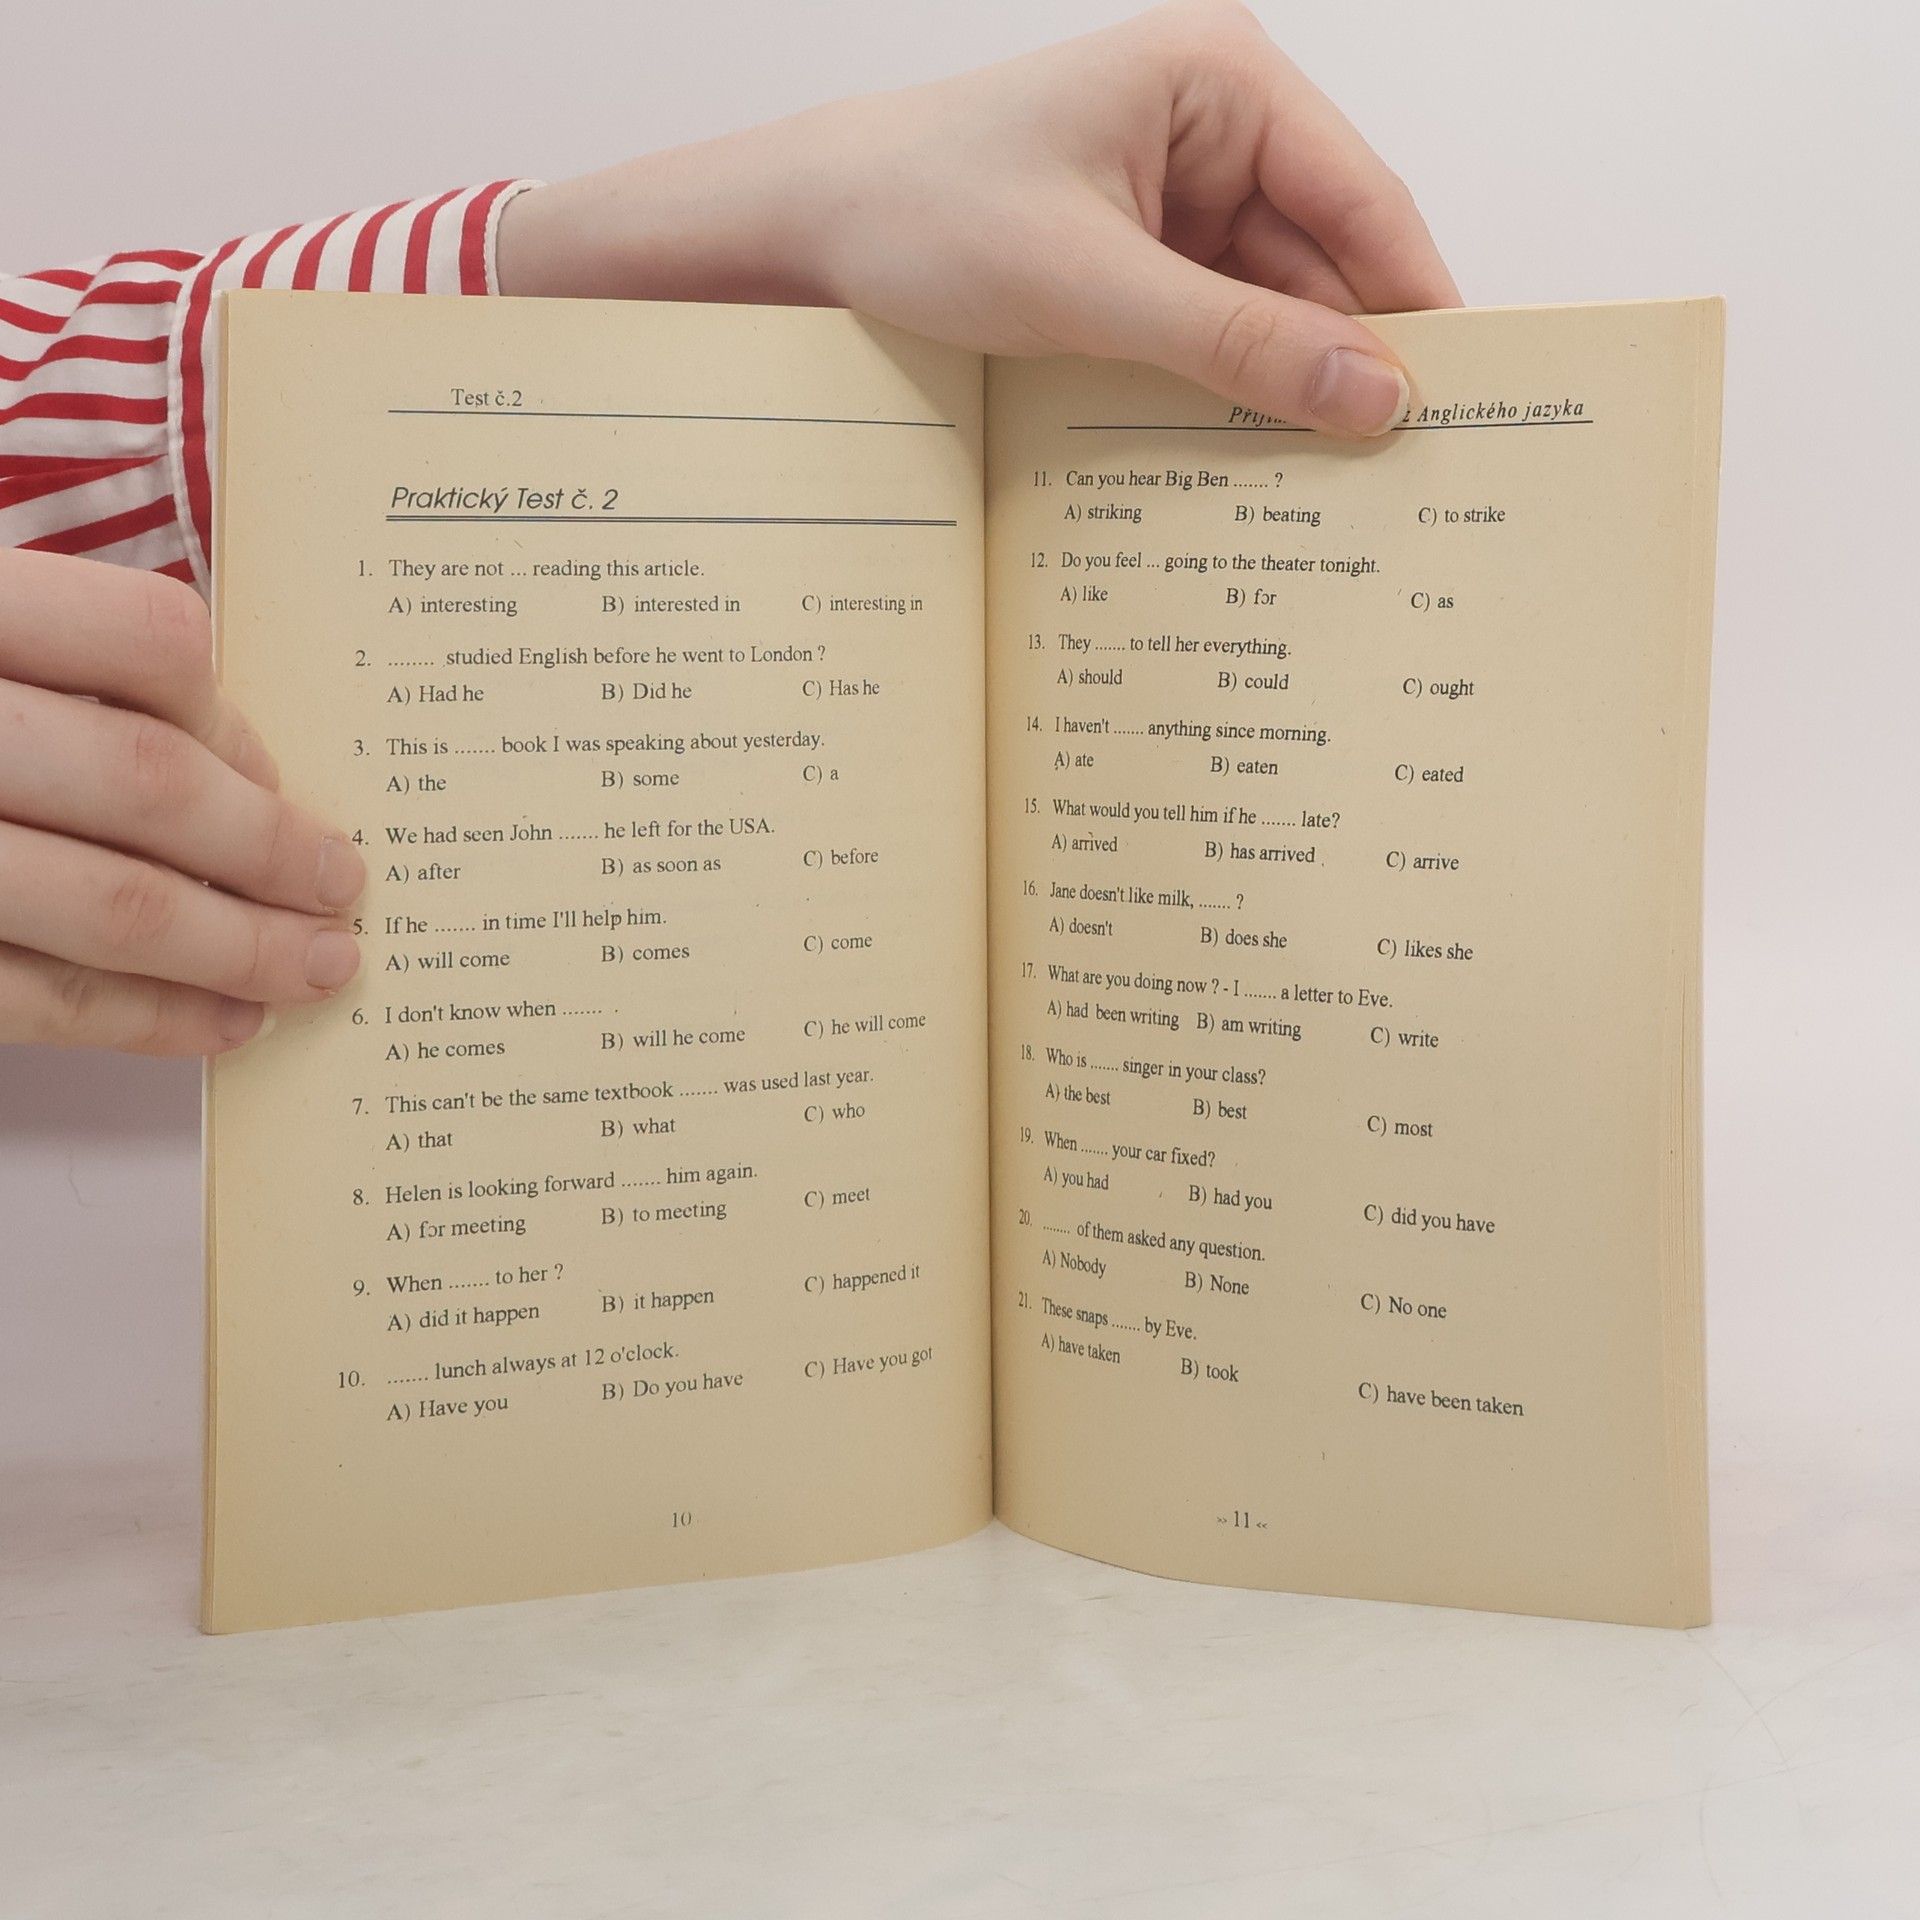 Test č.2
Praktický Test č. 2
1. They are not ... reading this article.
A) interesting B) interested in C) interesting in
2. ........ studied English before he went to London ?
A) Had he B) Did he C) Has he
3. This is ....... book I was speaking about yesterday.
A) the B) some C) a
4. We had seen John ....... he left for the USA.
A) after B) as soon as C) before
5. If he ....... in time I'll help him.
A) will come B) comes C) come
6. I don't know when ....... .
A) he comes B) will he come C) he will come
7. This can't be the same textbook ....... was used last year.
A) that B) what C) who
8. Helen is looking forward ....... him again.
A) for meeting B) to meeting C) meet
9. When ....... to her ?
A) did it happen B) it happen C) happened it
10. ....... lunch always at 12 o'clock.
A) Have you B) Do you have C) Have you got
10
z Anglického jazyka
11. Can you hear Big Ben ....... ?
A) striking B) beating C) to strike
12. Do you feel ... going to the theater tonight.
A) like B) for C) as
13. They ....... to tell her everything.
A) should B) could C) ought
14. I haven't ....... anything since morning.
A) ate B) eaten C) eated
15. What would you tell him if he ....... late?
A) arrived B) has arrived C) arrive
16. Jane doesn't like milk, ....... ?
A) doesn't B) does she C) likes she
17. What are you doing now ? - I ....... a letter to Eve.
A) had been writing B) am writing C) write
18. Who is ....... singer in your class?
A) the best B) best C) most
19. When ....... your car fixed?
A) you had B) had you C) did you have
20. ........ of them asked any question.
A) Nobody B) None C) No one
21. These snaps ....... by Eve.
A) have taken B) took C) have been taken
» 11 «